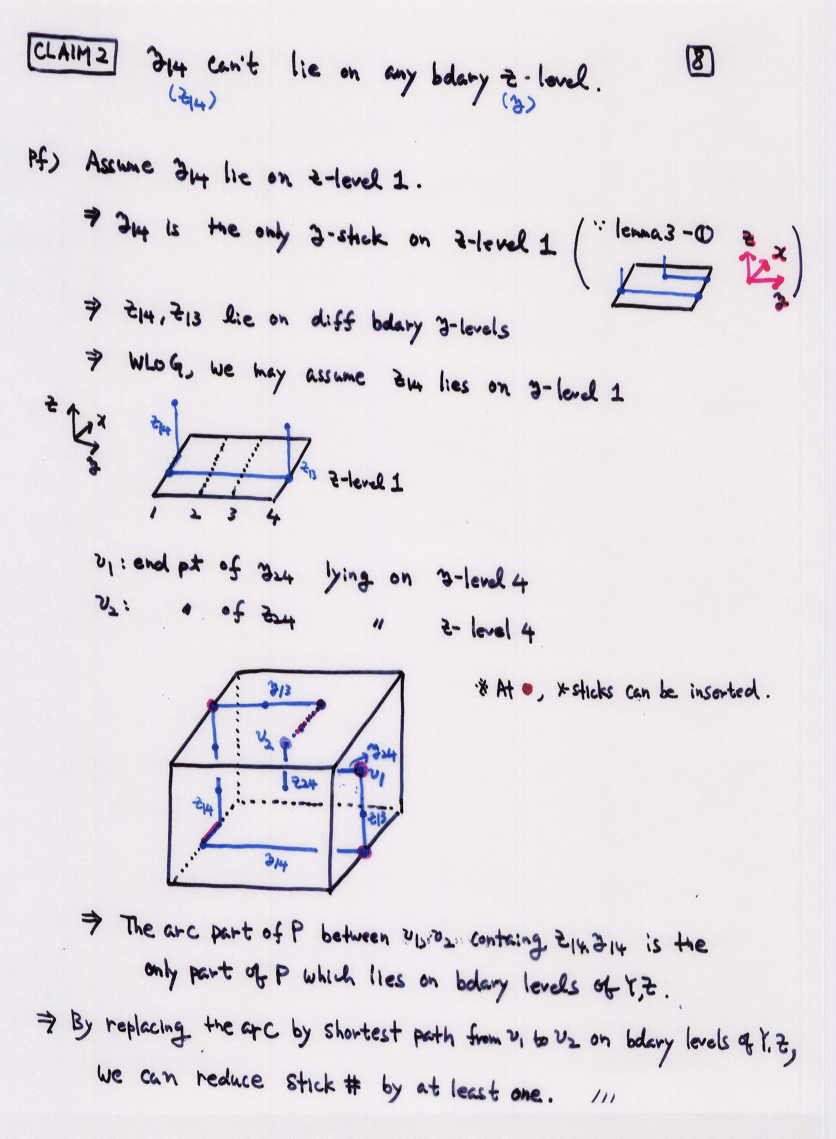 CLAIM 2 y14 can't lie on any bdary z-level. 8
(z14) (y)
Pf) Assume y14 lie on z-level 1.
⇒ y14 is the only y-stick on z-level 1 (∵ lemma3-① z x y)
⇒ z14, z13 lie on diff bdary y-levels
⇒ WLOG, we may assume z14 lies on y-level 1
z x y z14 z13 z-level 1
1 2 3 4
v1: end pt of y24 lying on y-level 4
v2: 〃 of z24 〃 z-level 4
y13 * At ●, x-sticks can be inserted.
v2 y24
z24 v1
z14 z13
y14
⇒ The arc part of P between v1, v2 containg z14, y14 is the
only part of P which lies on bdary levels of Y, Z.
⇒ By replacing the arc by shortest path from v1 to v2 on bdary levels of Y, Z,
we can reduce stick # by at least one. ///